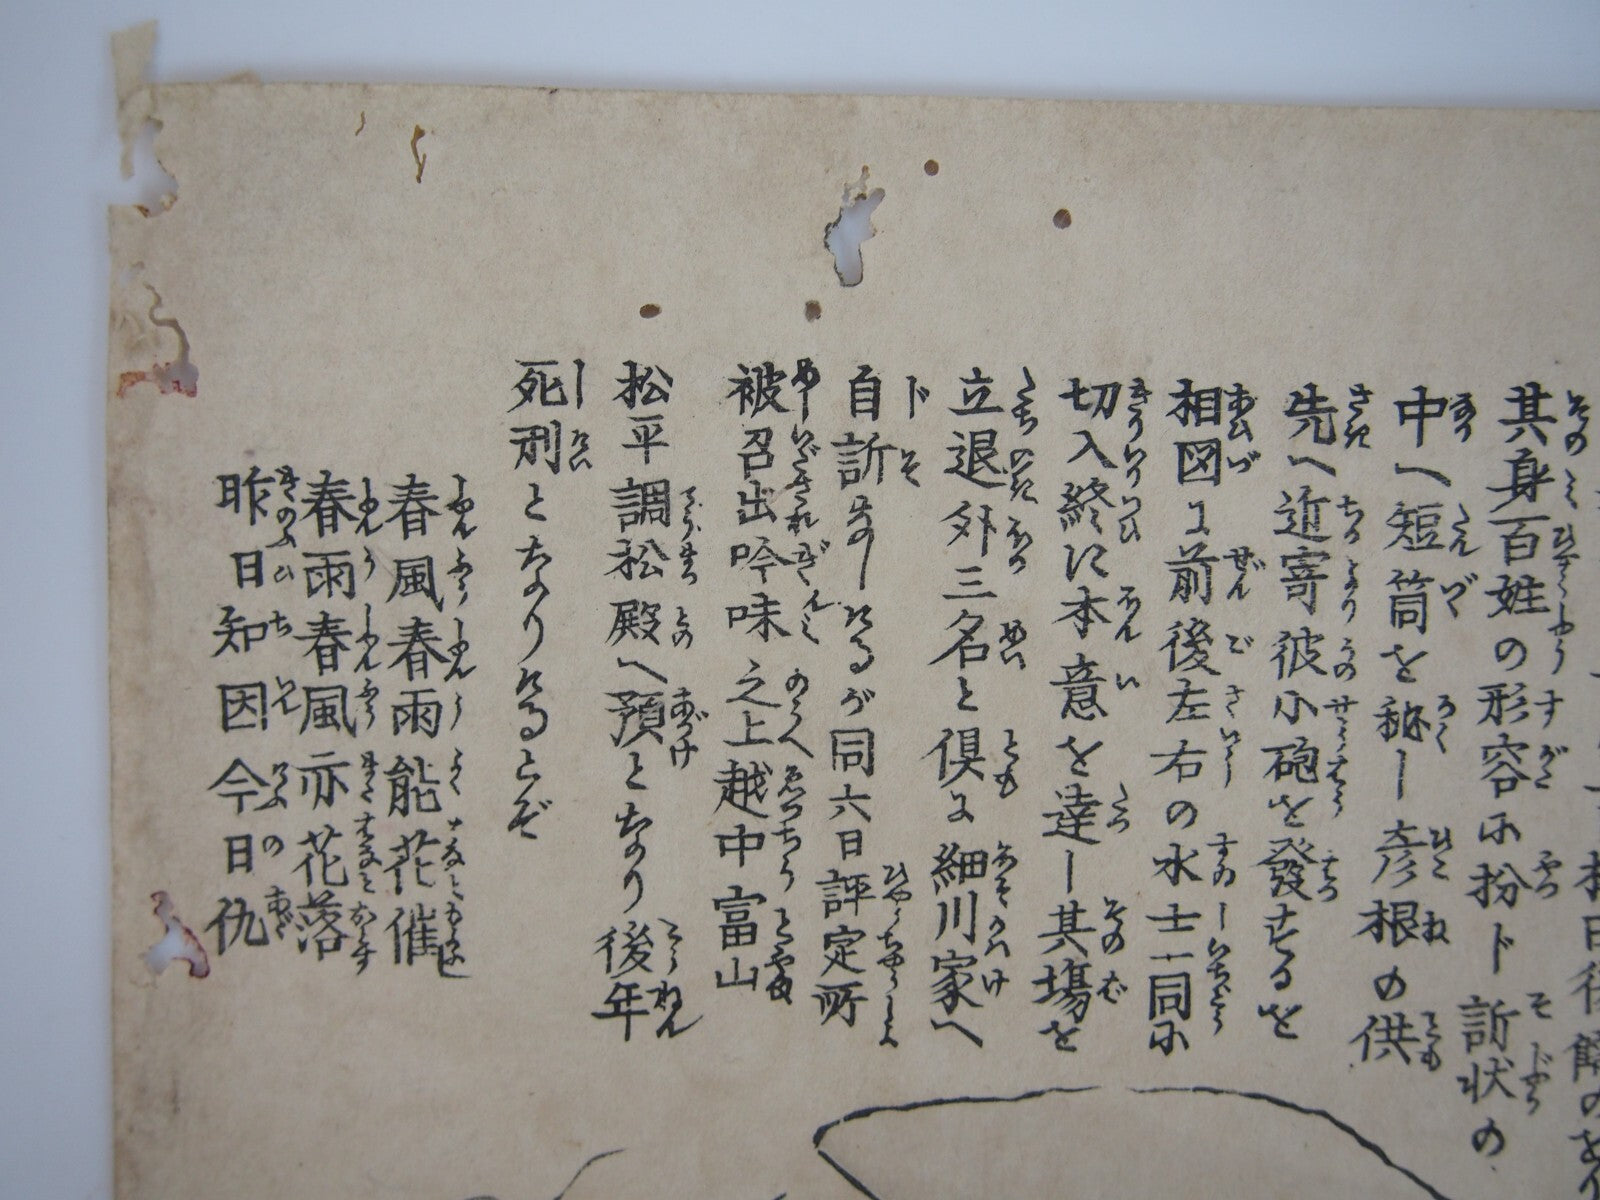 其身百姓の形容に扮ド訴状の
中へ短筒を秘し彦根の供
先へ近寄彼小砲を發するを
相図に前後左右の水士一同に
切入終に本意を達し其場を
立退外三名と倶に細川家へ
自訴なしけるが同六日評定所
被召出吟味之上越中富山
松平調松殿へ預となり後年
死刑となりけるとぞ
春風春雨能花催
春雨春風亦花落
昨日知因今日仇